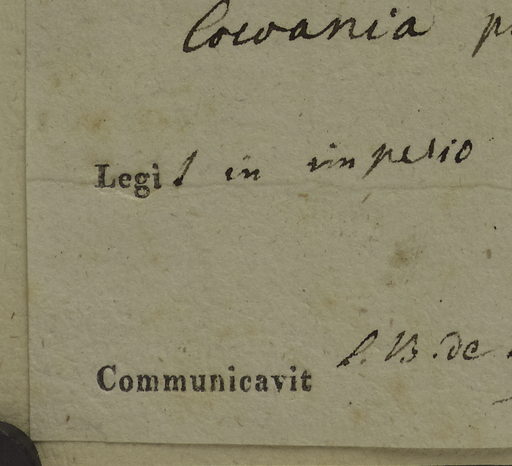 Cowania p
Legit in imperio
Communicavit S. B. de